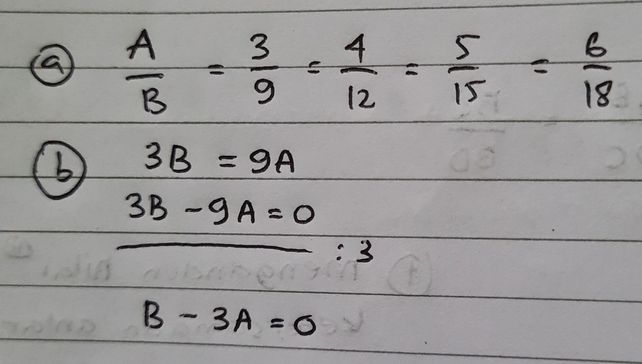 a A/B = 3/9 = 4/12 = 5/15 = 6/18
b 3B = 9A
3B - 9A = 0
: 3
B - 3A = 0